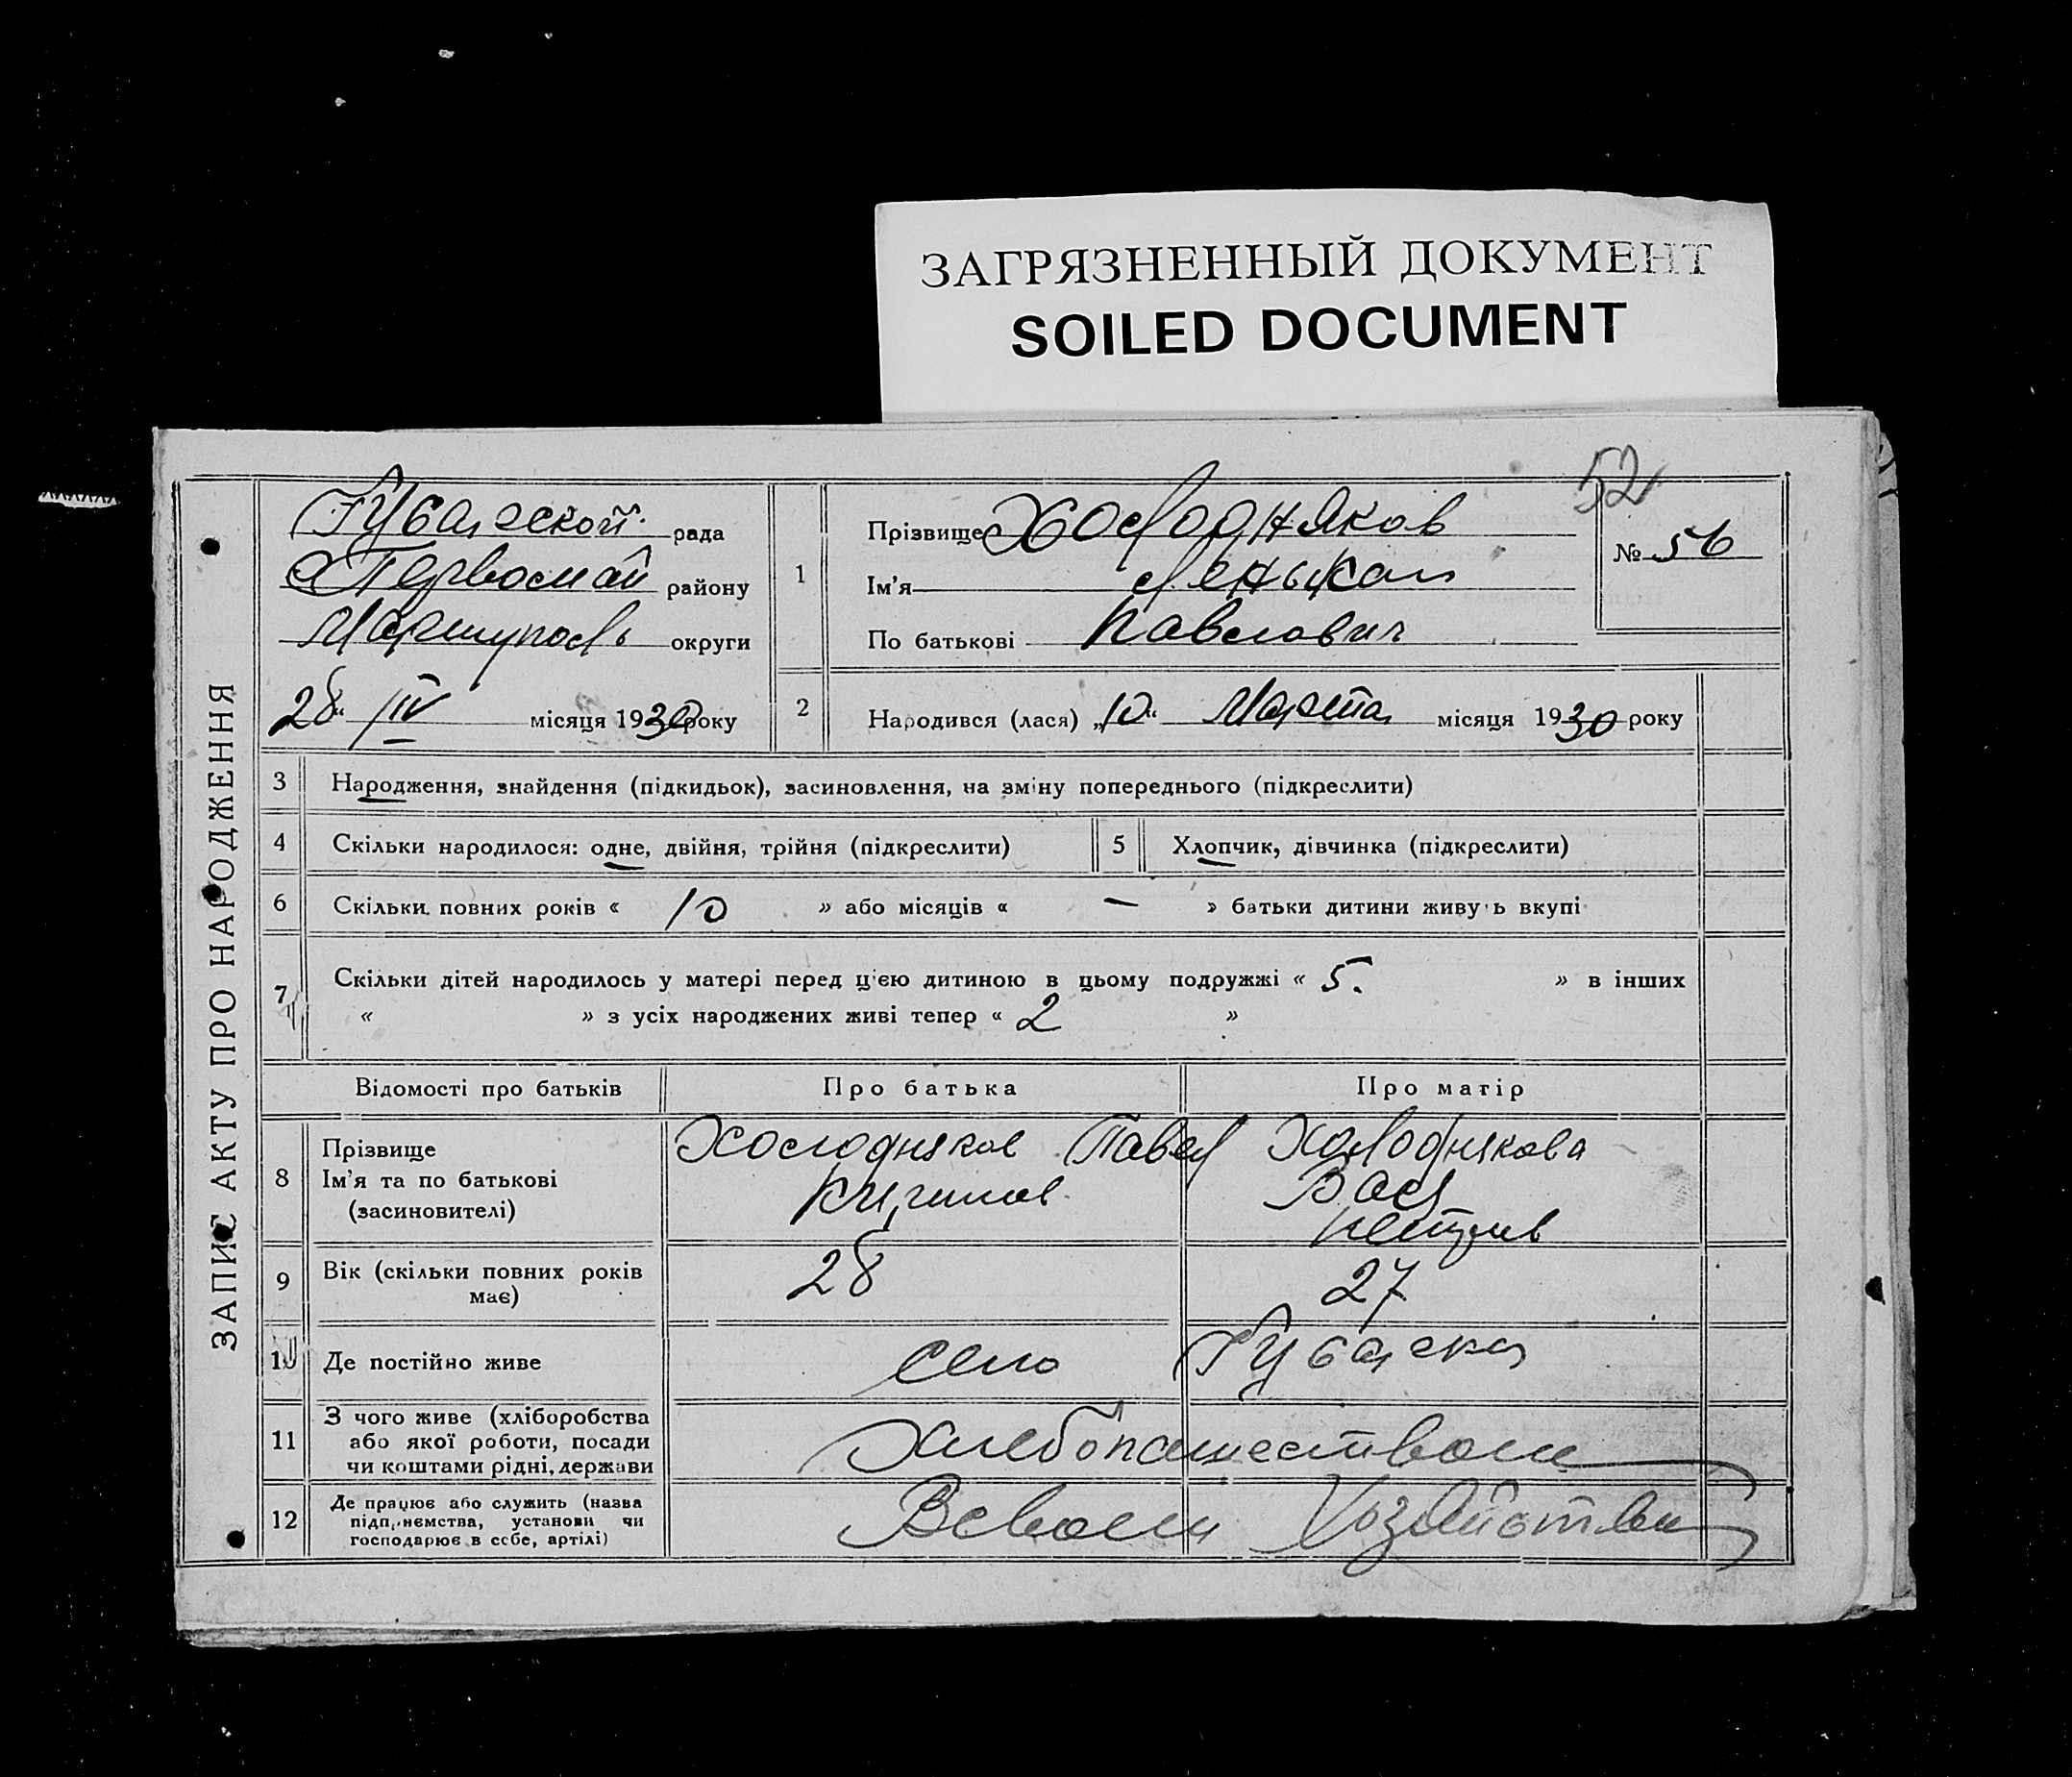 ЗАГРЯЗНЕННЫЙ ДОКУМЕНТ
SOILED DOCUMENT
52
ЗАПИС АКТУ ПРО НАРОДЖЕННЯ
рада
Первомай району
Мариуполь округи
28 IV місяця 1930 року
1
Прізвище Холодняков
Ім'я
По батькові Павлович
№ 56
2
Народився (лася) „10“ Марта місяця 1930 року
3 Народження, знайдення (підкидьок), засиновлення, на зміну попереднього (підкреслити)
4 Скільки народилося: одне, двійня, трійня (підкреслити)
5 Хлопчик, дівчинка (підкреслити)
6 Скільки повних років « 10 » або місяців « — » батьки дитини живуть вкупі
7 Скільки дітей народилось у матері перед цією дитиною в цьому подружжі « 5. » в інших
« » з усіх народжених живі тепер « 2 »
Відомості про батьків Про батька Про матір
8 Прізвище
Ім'я та по батькові
(засиновителі)
Холодняков Павел
Холоднякова
9 Вік (скільки повних років
має)
28 27
10 Де постійно живе село
11 З чого живе (хліборобства
або якої роботи, посади
чи коштами рідні, держави
Хлебопашеством
12 Де працює або служить (назва
підприємства, установи чи
господарює в себе, артілі)
Всвоем Хозяйстви